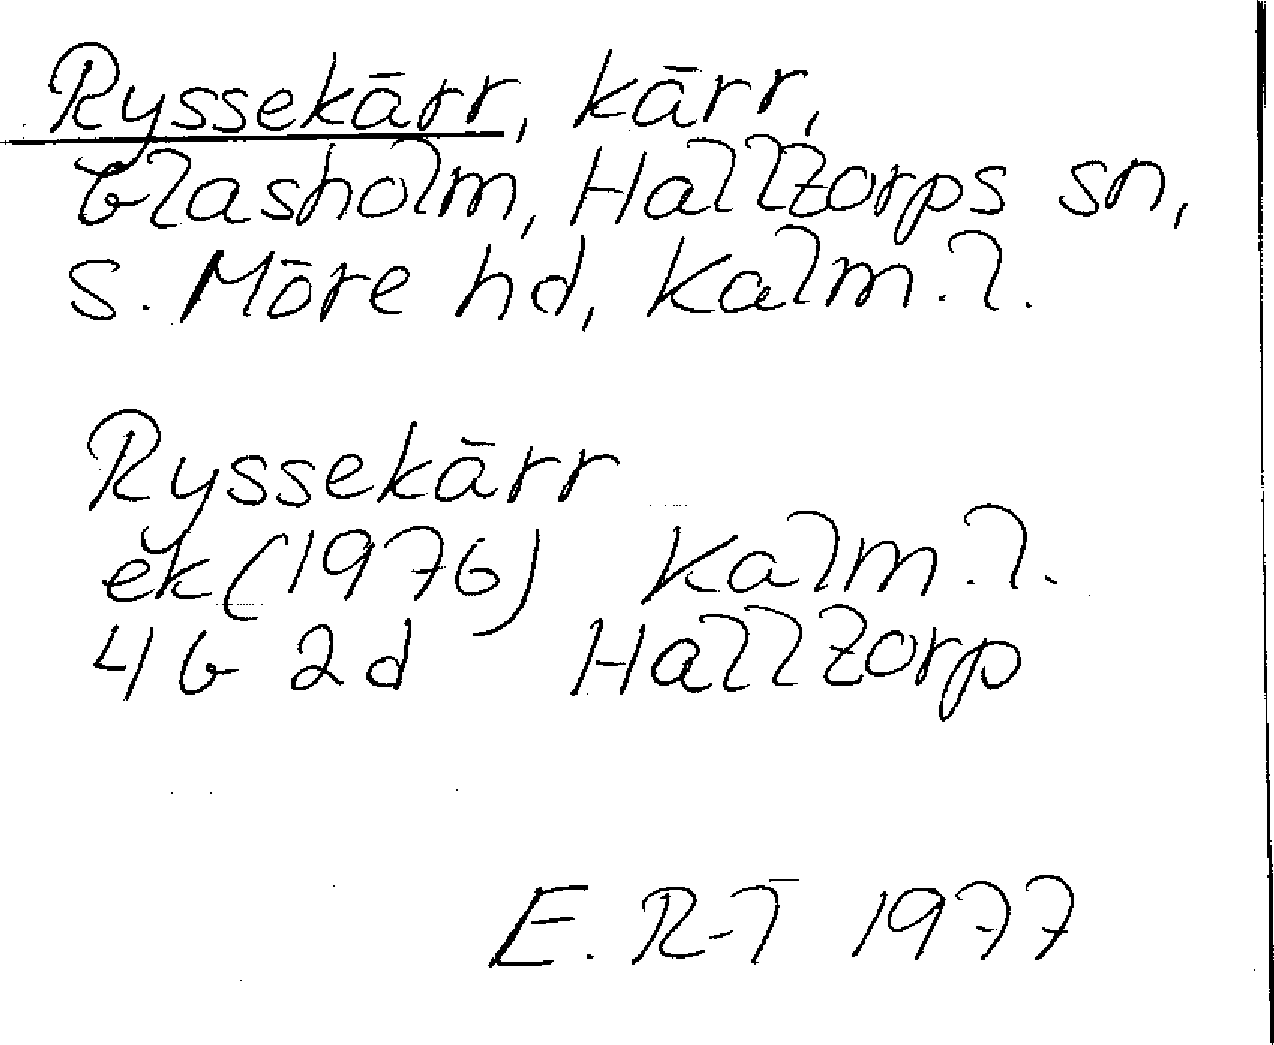 Ryssekärr, kärr,
Glasholm, Halltorps sn,
S. Möre hd, Kalm. l.
Ryssekärr
ek (1976) Kalm. l.
4G 2d Halltorp
E. R-T 1977